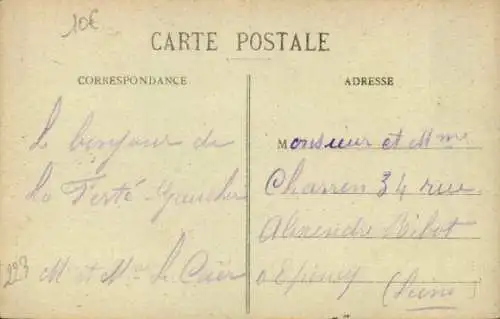 10€
CARTE POSTALE
CORRESPONDANCE
L bonjour de
La Ferté-Gaucher
223
M et Mme Le
ADRESSE
Monsieur et Mme
Charren 34 rue
Alexendre Ribot
(Seine)